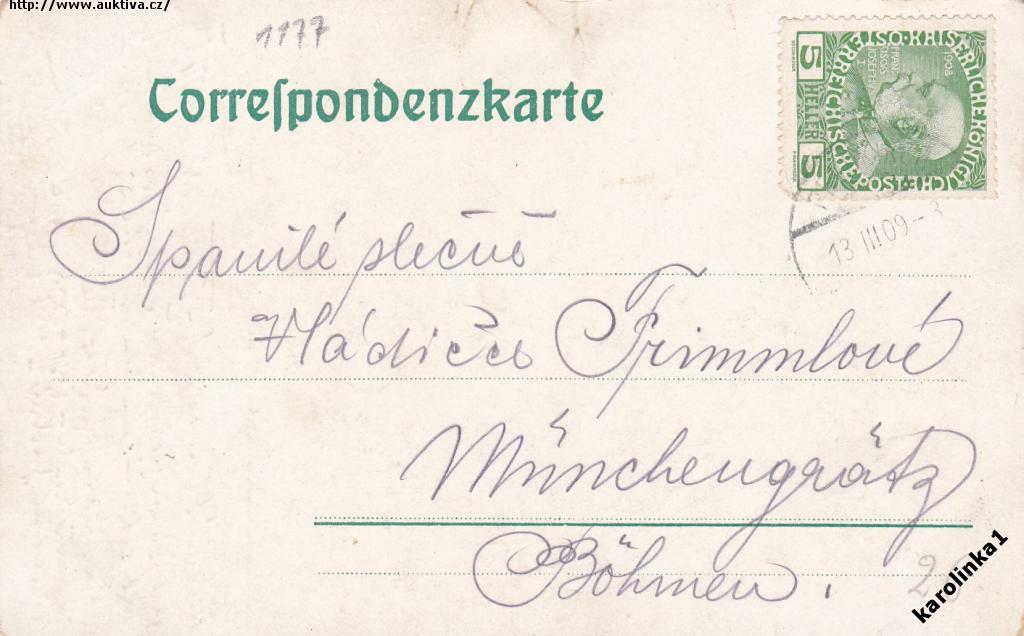 http://www.auktiva.cz/
1177
Correſpondenzkarte
KAISERLICHE KÖNIGLICHE ÖSTERREICHISCHE POST
1908
FRANZ JOSEPH I
5 HELLER 5
13 III 09 - 3
Spanilé slečně
Vládičce Frimmlové
Münchengrätz
Böhmen.
karolinka1